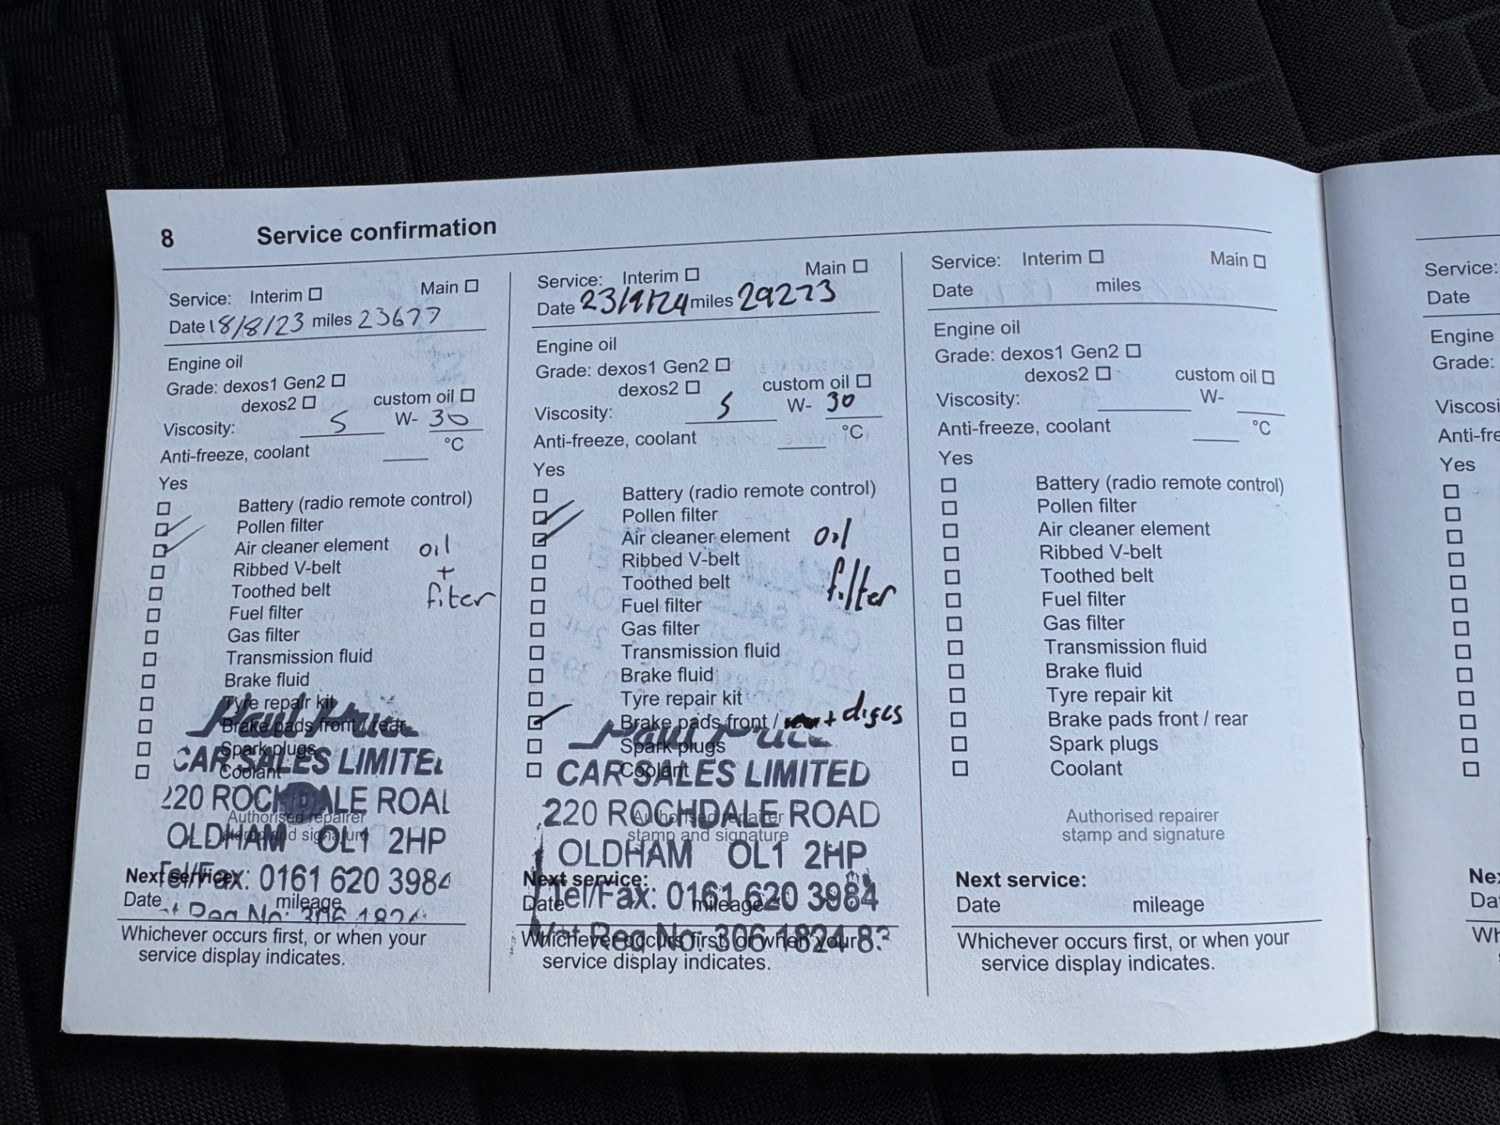 8 Service confirmation
Service: Interim Main
Date 18/8/23 miles 23677
Engine oil
Grade: dexos1 Gen2
dexos2 custom oil
Viscosity: 5 W- 30
Anti-freeze, coolant °C
Yes
Battery (radio remote control)
Pollen filter
Air cleaner element
oil
Ribbed V-belt
+
Toothed belt
fiter
Fuel filter
Gas filter
Transmission fluid
Brake fluid
Tyre repair kit
Brake pads front / rear
Spark plugs
Coolant
CAR SALES LIMITED
220 ROCHDALE ROAD
Authorised repairer
stamp and signature
OLDHAM OL1 2HP
Tel/Fax: 0161 620 3984
Next service:
Date mileage
Reg No: 306 1824
Whichever occurs first, or when your
service display indicates.
Service: Interim Main
Date miles 29273
Engine oil
Grade: dexos1 Gen2
dexos2 custom oil
Viscosity: 5 W- 30
Anti-freeze, coolant °C
Yes
Battery (radio remote control)
Pollen filter
Air cleaner element oil
Ribbed V-belt
Toothed belt filter
Fuel filter
Gas filter
Transmission fluid
Brake fluid
Tyre repair kit
Brake pads front / + discs
Paul Price
Spark plugs
Coolant
CAR SALES LIMITED
220 ROCHDALE ROAD
Authorised repairer
stamp and signature
OLDHAM OL1 2HP
Next service:
Tel/Fax: 0161 620 3984
Date mileage
Vat Reg No: 306 1824 83
Whichever occurs first, or when your
service display indicates.
Service: Interim Main
Date miles
Engine oil
Grade: dexos1 Gen2
dexos2 custom oil
Viscosity: W-
Anti-freeze, coolant °C
Yes
Battery (radio remote control)
Pollen filter
Air cleaner element
Ribbed V-belt
Toothed belt
Fuel filter
Gas filter
Transmission fluid
Brake fluid
Tyre repair kit
Brake pads front / rear
Spark plugs
Coolant
Authorised repairer
stamp and signature
Next service:
Date mileage
Whichever occurs first, or when your
service display indicates.
Service:
Date
Engine
Grade:
Yes